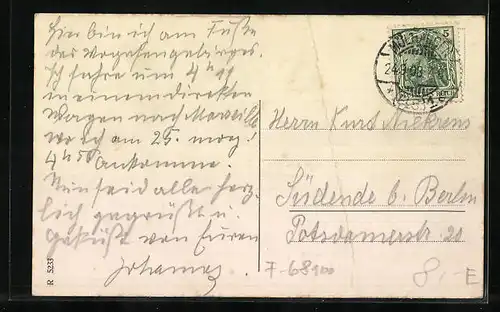 Hier bin ich am Fuße
des Vogesengebirges.
Ich fahre um 4
in einem direkten
Wagen nach Marseille
wo ich am 25. morg.
ankomme.
Nun seid alle herz-
lich gegrüßt u.
geküßt von Euren
Johannes
R 5233
MÜLHAUSEN
5
REICH
Herrn Kurd
Südende b. Berlin
Potsdamerstr 20
F-68100
8,-E